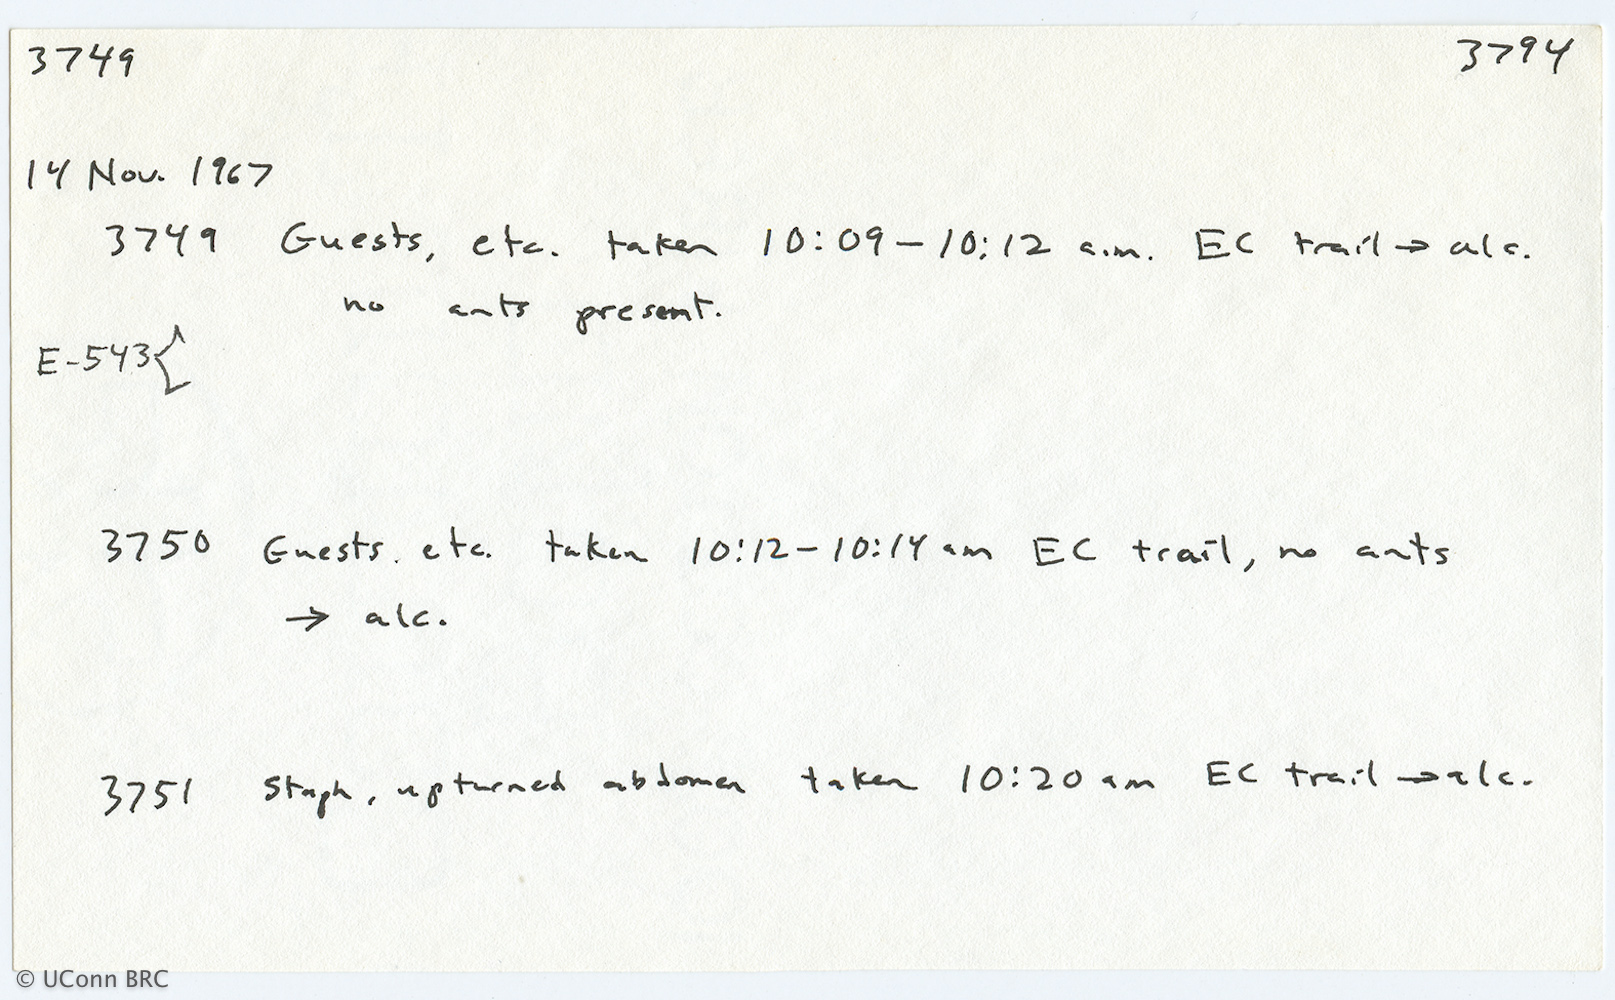 3749 3794
14 Nov. 1967
3749 Guests, etc. taken 10:09-10:12 a.m. EC trail → alc.
no ants present.
E-543{
3750 Guests. etc. taken 10:12-10:14 am EC trail, no ants
→ alc.
3751 Staph, upturned abdomen taken 10:20 am EC trail → alc.
© UConn BRC